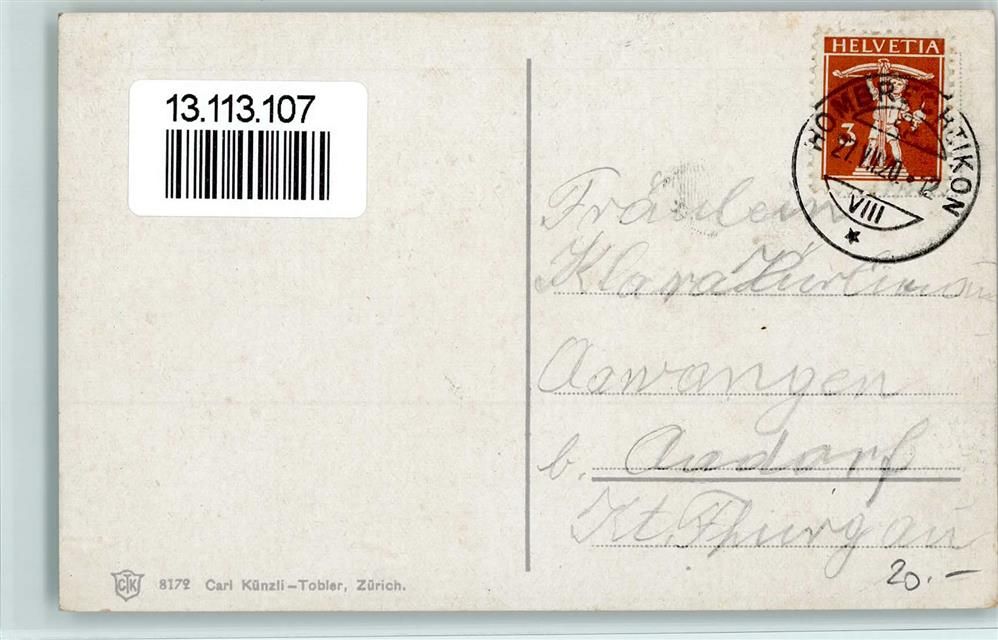 13.113.107
HELVETIA
3
HOMBRECHTIKON
27.VII.20 - 12
VIII
Fräulein
Klara
Aawangen
b. Aadorf
Kt. Thurgau
20.-
CTK 8172 Carl Künzli-Tobler, Zürich.